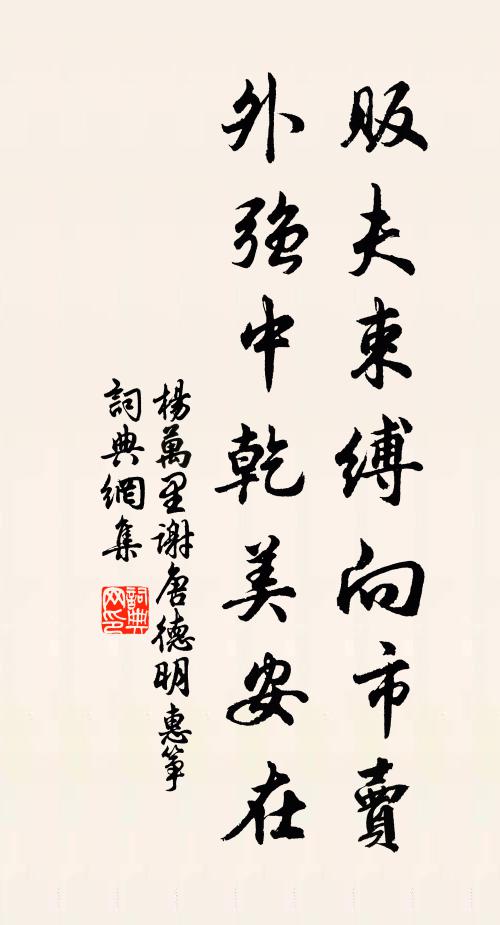 販夫束縛向市賣
外強中乾美安在
楊萬里謝唐德明惠筝
詞典網集
詞典網印